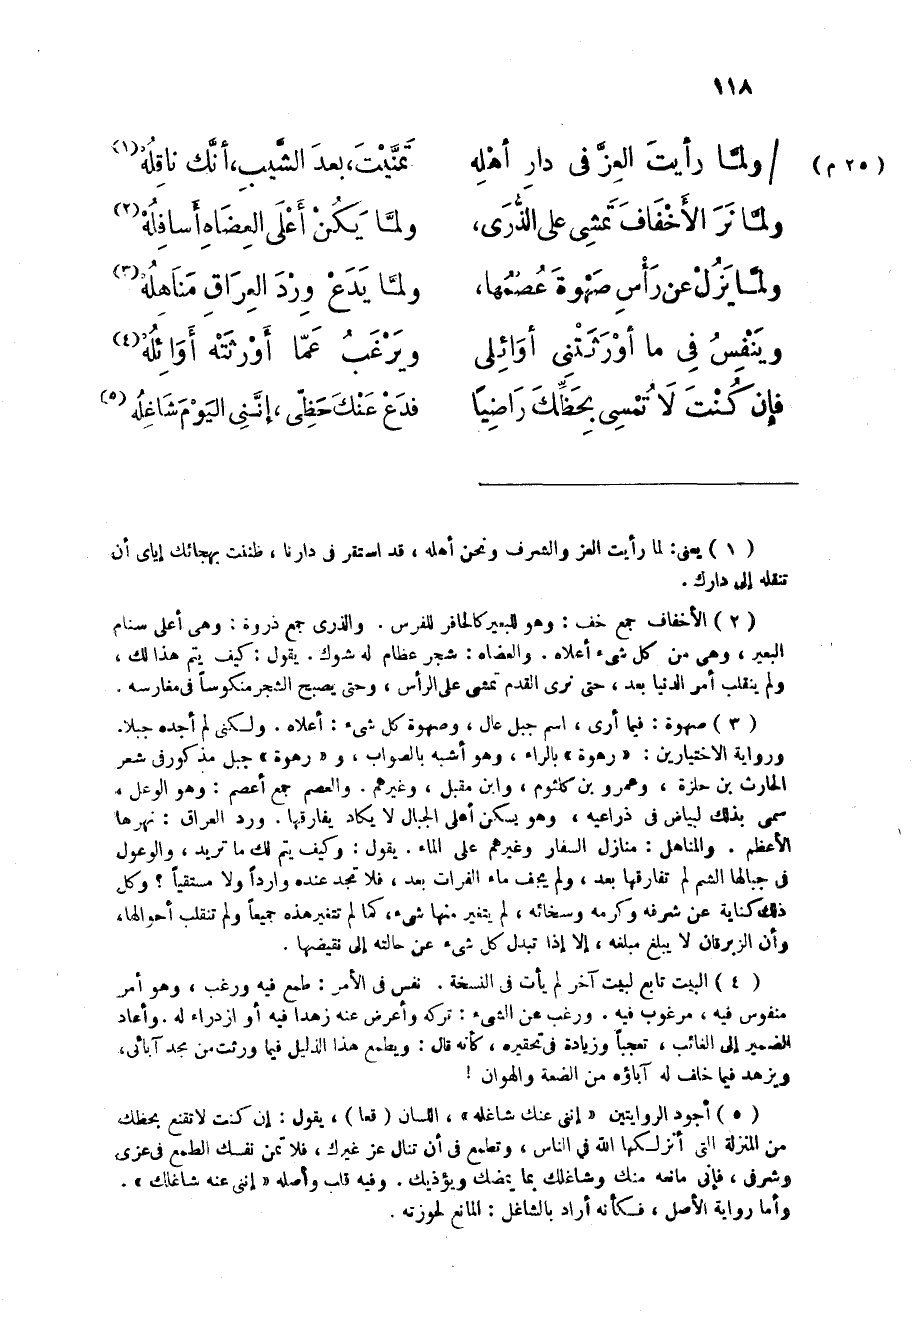 ١١٨
(٢٥ م) / ولمَّا رأيتَ العِزَّ فى دارِ أهْلِهِ تمنَّيْتَ، بعدَ الشَّيبِ، أنَّك ناقِلُهْ (١)
ولمَّا نَرَ الأَخْفَافَ تَمشِى على الذُّرَى، ولمَّا يَكُنْ أَعْلَى العِضَاهِ أَسافِلُهْ (٢)
ولمَّا يَزُلْ عن رَأْسِ صَهْوةَ عُصْمُها، ولمَّا يَدَعْ وِرْدَ العِرَاقِ مَنَاهِلُهْ (٣)
ويَنْفِسُ فِى ما أوْرَثَتْنِى أوَائِلى ويَرْغَبُ عَمَّا أَوْرثَتْه أَوَائلُهْ (٤)
فإن كُنْتَ لَا تُمْسِى بِحَظِّكَ رَاضِيًا فدَعْ عَنْكَ حَظِّى، إنَّنِى اليَوْمَ شَاغِلُه (٥)
(١) يعنى: لما رأيت العز والشرف ونحن أهله، قد استقر فى دارنا، ظننت بهجائك إياى أن
تنقله إلى دارك.
(٢) الأخفاف جمع خف: وهو للبعير كالحافر للفرس. والذرى جمع ذروة: وهى أعلى سنام
البعير، وهى من كل شىء أعلاه. والعضاه: شجر عظام له شوك. يقول: كيف يتم هذا لك،
ولم ينقلب أمر الدنيا بعد، حتى نرى القدم تمشى على الرأس، وحتى يصبح الشجر منكوساً فى مغارسه.
(٣) صهوة: فيما أرى، اسم جبل عال، وصهوة كل شىء: أعلاه. ولكنى لم أجده جبلا.
ورواية الاختيارين: «رهوة» بالراء، وهو أشبه بالصواب، و«رهوة» جبل مذكور فى شعر
الحارث بن حلزة، وعمرو بن كلثوم، وابن مقبل، وغيرهم. والعصم جمع أعصم: وهو الوعل،
سمى بذلك لبياض فى ذراعيه، وهو يسكن أعلى الجبال لا يكاد يفارقها. ورد العراق: نهرها
الأعظم. والمناهل: منازل السفار وغيرهم على الماء. يقول: وكيف يتم لك ما تريد، والوعول
فى جبالها الشم لم تفارقها بعد، ولم يجف ماء الفرات بعد، فلا تجد عنده وارداً ولا مستقياً؟ وكل
ذلك كناية عن شرفه وكرمه وسخائه، لم يتغير منها شىء، كما لم تتغير هذه جميعاً ولم تنقلب أحوالها،
وأن الزبرقان لا يبلغ مبلغه، إلا إذا تبدل كل شىء عن حالته إلى نقيضها.
(٤) البيت تابع لبيت آخر لم يأت فى النسخة. نفس فى الأمر: طمع فيه ورغب، وهو أمر
منفوس فيه، مرغوب فيه. ورغب عن الشىء: تركه وأعرض عنه زهدا فيه أو ازدراء له. وأعاد
الضمير إلى الغائب، تعجباً وزيادة فى تحقيره، كأنه قال: ويطمع هذا الذليل فيما ورثت من مجد آبائى،
ويزهد فيما خلف له آباؤه من الضعة والهوان!
(٥) أجود الروايتين «إننى عنك شاغله»، اللسان (قعا)، يقول: إن كنت لا تقنع بحظك
من المنزلة التى أنزلكها الله فى الناس، وتطمع فى أن تنال عز غيرك، فلا تمن نفسك الطمع فى عزى
وشرفى، فإنى مانعه منك وشاغلك بما يمضك ويؤذيك. وفيه قلب وأصله «إننى عنه شاغلك».
وأما رواية الأصل، فكأنه أراد بالشاغل: المانع لحوزته.